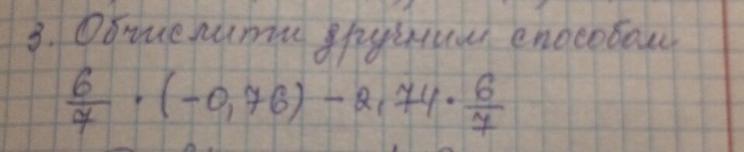 3. Обчислити зручним способом
6/7 · (-0,76) - 2,74 · 6/7